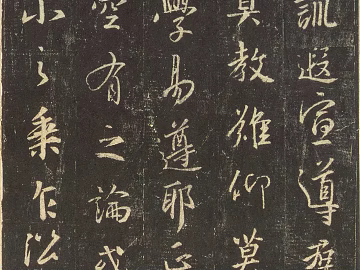 訓遐宣導羣
真教難仰莫
學易遵耶正
空有之論或
小之乘乍沿